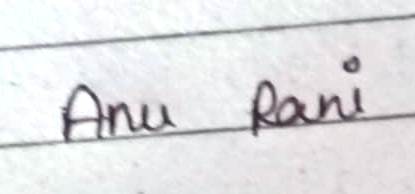 Anu Rani